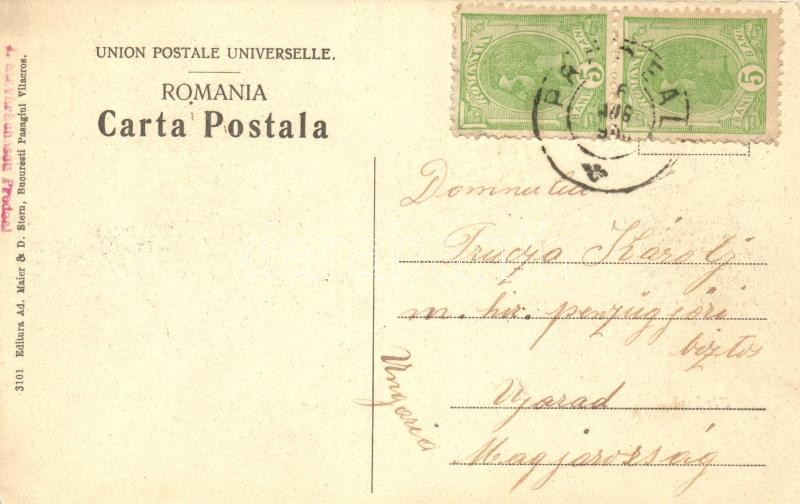 UNION POSTALE UNIVERSELLE.
ROMANIA
Carta Postala
3101 Editura Ad. Maier & D. Stern, Bucuresti Pasagiul Vilacros.
ROMANIA
5
BANI
BANI
ROMANIA
5
BANI
BANI
Domnului
Trucza Károly
m. kir. penzügyőri
biztos
Ujarad
Magyarország
Ungaria